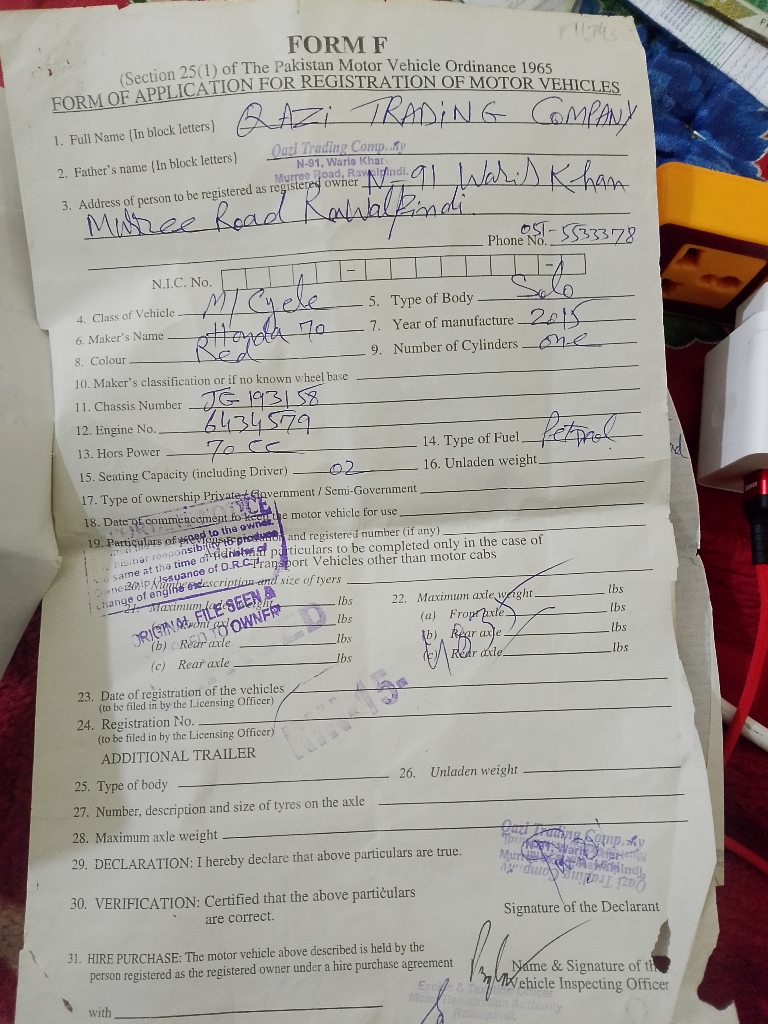 FORM F
(Section 25(1) of The Pakistan Motor Vehicle Ordinance 1965
FORM OF APPLICATION FOR REGISTRATION OF MOTOR VEHICLES
1. Full Name {In block letters} QAZi TRADING COMPANY
2. Father's name {In block letters}
Qazi Trading Comp
N-91, Waris Khan
Murree Road, Rawalpindi.
3. Address of person to be registered as registered owner N-91 Waris Khan
Murree Road Rawalpindi.
Phone No. 051-5533378
N.I.C. No.
4. Class of Vehicle M/Cycle 5. Type of Body Solo
6. Maker's Name Honda 70 7. Year of manufacture 2015
8. Colour Red 9. Number of Cylinders one
10. Maker's classification or if no known wheel base
11. Chassis Number JG 193158
12. Engine No. 6434579
13. Hors Power 70 cc 14. Type of Fuel Petrol
15. Seating Capacity (including Driver) 02 16. Unladen weight
17. Type of ownership Private / Government / Semi-Government
18. Date of commencement to keep the motor vehicle for use
19. Particulars of previous and registered number (if any)
particulars to be completed only in the case of
Transport Vehicles other than motor cabs
description and size of tyers
21. Maximum weight lbs 22. Maximum axle weight lbs
Front axle lbs (a) Front axle lbs
(b) Rear axle lbs (b) Rear axle lbs
(c) Rear axle lbs (c) Rear axle lbs
NOTICE
to the owner
responsibility to produce
same at the time of transfer of
Issuance of D.R.C
change of engine
ORIGINAL FILE SEEN &
TO OWNER
23. Date of registration of the vehicles
(to be filed in by the Licensing Officer)
24. Registration No.
(to be filed in by the Licensing Officer)
-15-
ADDITIONAL TRAILER
25. Type of body 26. Unladen weight
27. Number, description and size of tyres on the axle
28. Maximum axle weight
29. DECLARATION: I hereby declare that above particulars are true.
Qazi Trading Comp
30. VERIFICATION: Certified that the above particulars
are correct.
Signature of the Declarant
31. HIRE PURCHASE: The motor vehicle above described is held by the
person registered as the registered owner under a hire purchase agreement
with
Name & Signature of the
Vehicle Inspecting Officer
Motor Registration Authority
Rawalpindi